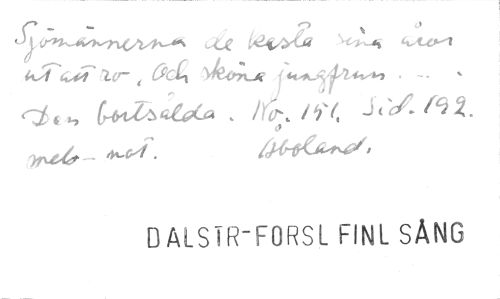 Sjömännerna de kasta sina åror
ut att ro, och sköna jungfrun . . .
Den bortsålda. No. 151. Sid. 192.
mel-not. Åboland.
DALSTR-FORSL FINL SÅNG